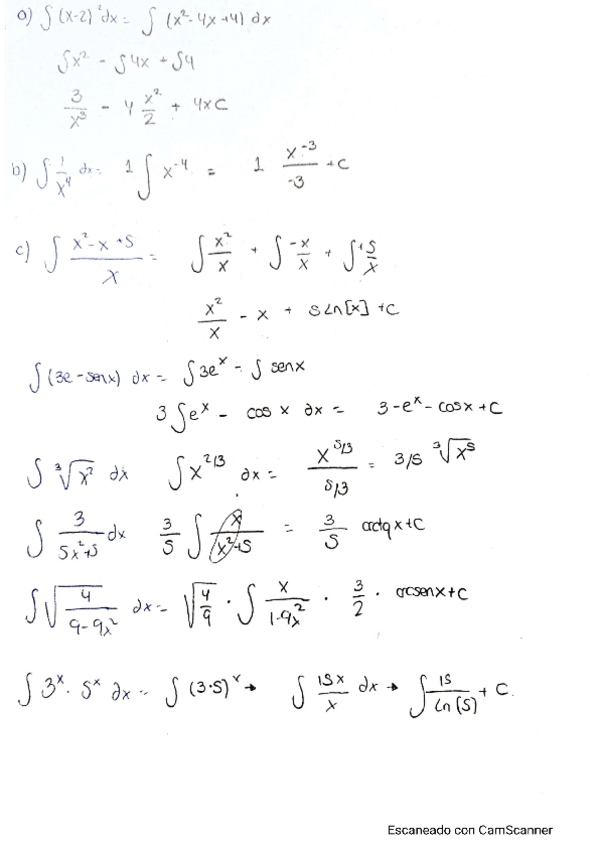 a) ∫ (x-2)² dx = ∫ (x² - 4x + 4) dx
∫x² - ∫4x + ∫4
3/x³ - 4 x²/2 + 4x C
b) ∫ 1/x⁴ dx = 1 ∫ x⁻⁴ = 1 x⁻³/-3 + C
c) ∫ (x² - x + 5)/x = ∫ x²/x + ∫ -x/x + ∫ +5/x
x²/x - x + 5 Ln[x] + C
∫ (3e - senx) dx = ∫ 3eˣ - ∫ senx
3 ∫ eˣ - cos x dx = 3 - eˣ - cosx + C
∫ ³√x² dx ∫ x^2/3 dx = x^5/3 / 5/3 = 3/5 ³√x⁵
∫ 3/(5x²+5) dx 3/5 ∫ x/(x²+5) = 3/5 arctg x + C
∫ √(4/(9-9x²)) dx = √(4/9) · ∫ x/(1-9x²) · 3/2 · arcsenx + C
∫ 3ˣ · 5ˣ dx = ∫ (3·5)ˣ → ∫ 15x/x dx → ∫ 15/Ln(5) + C.
Escaneado con CamScanner